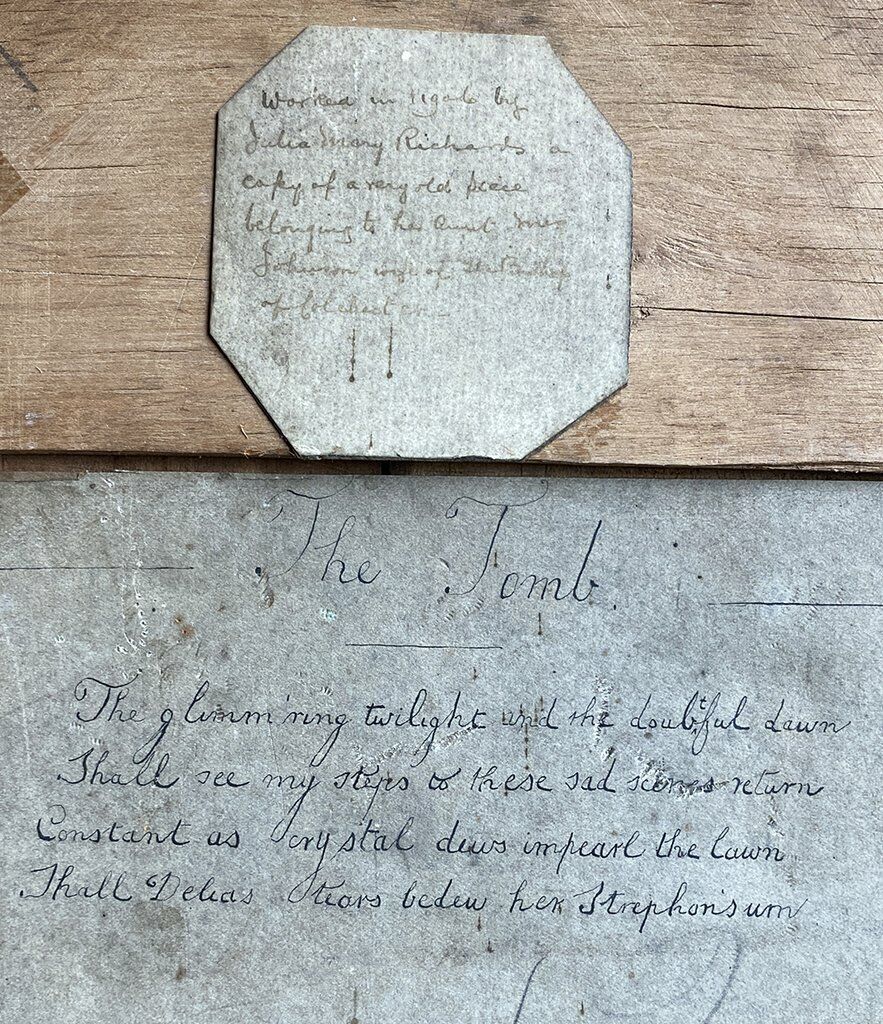 Worked in by
Julia Mary Richards a
copy of a very old piece
belonging to her Aunt Mrs
Johnson wife of
of Colchester
The Tomb
The glimm'ring twilight and the doubtful dawn
Shall see my steps to these sad scenes return
Constant as crystal dews impearl the lawn
Shall Delias tears bedew her Strephon's urn